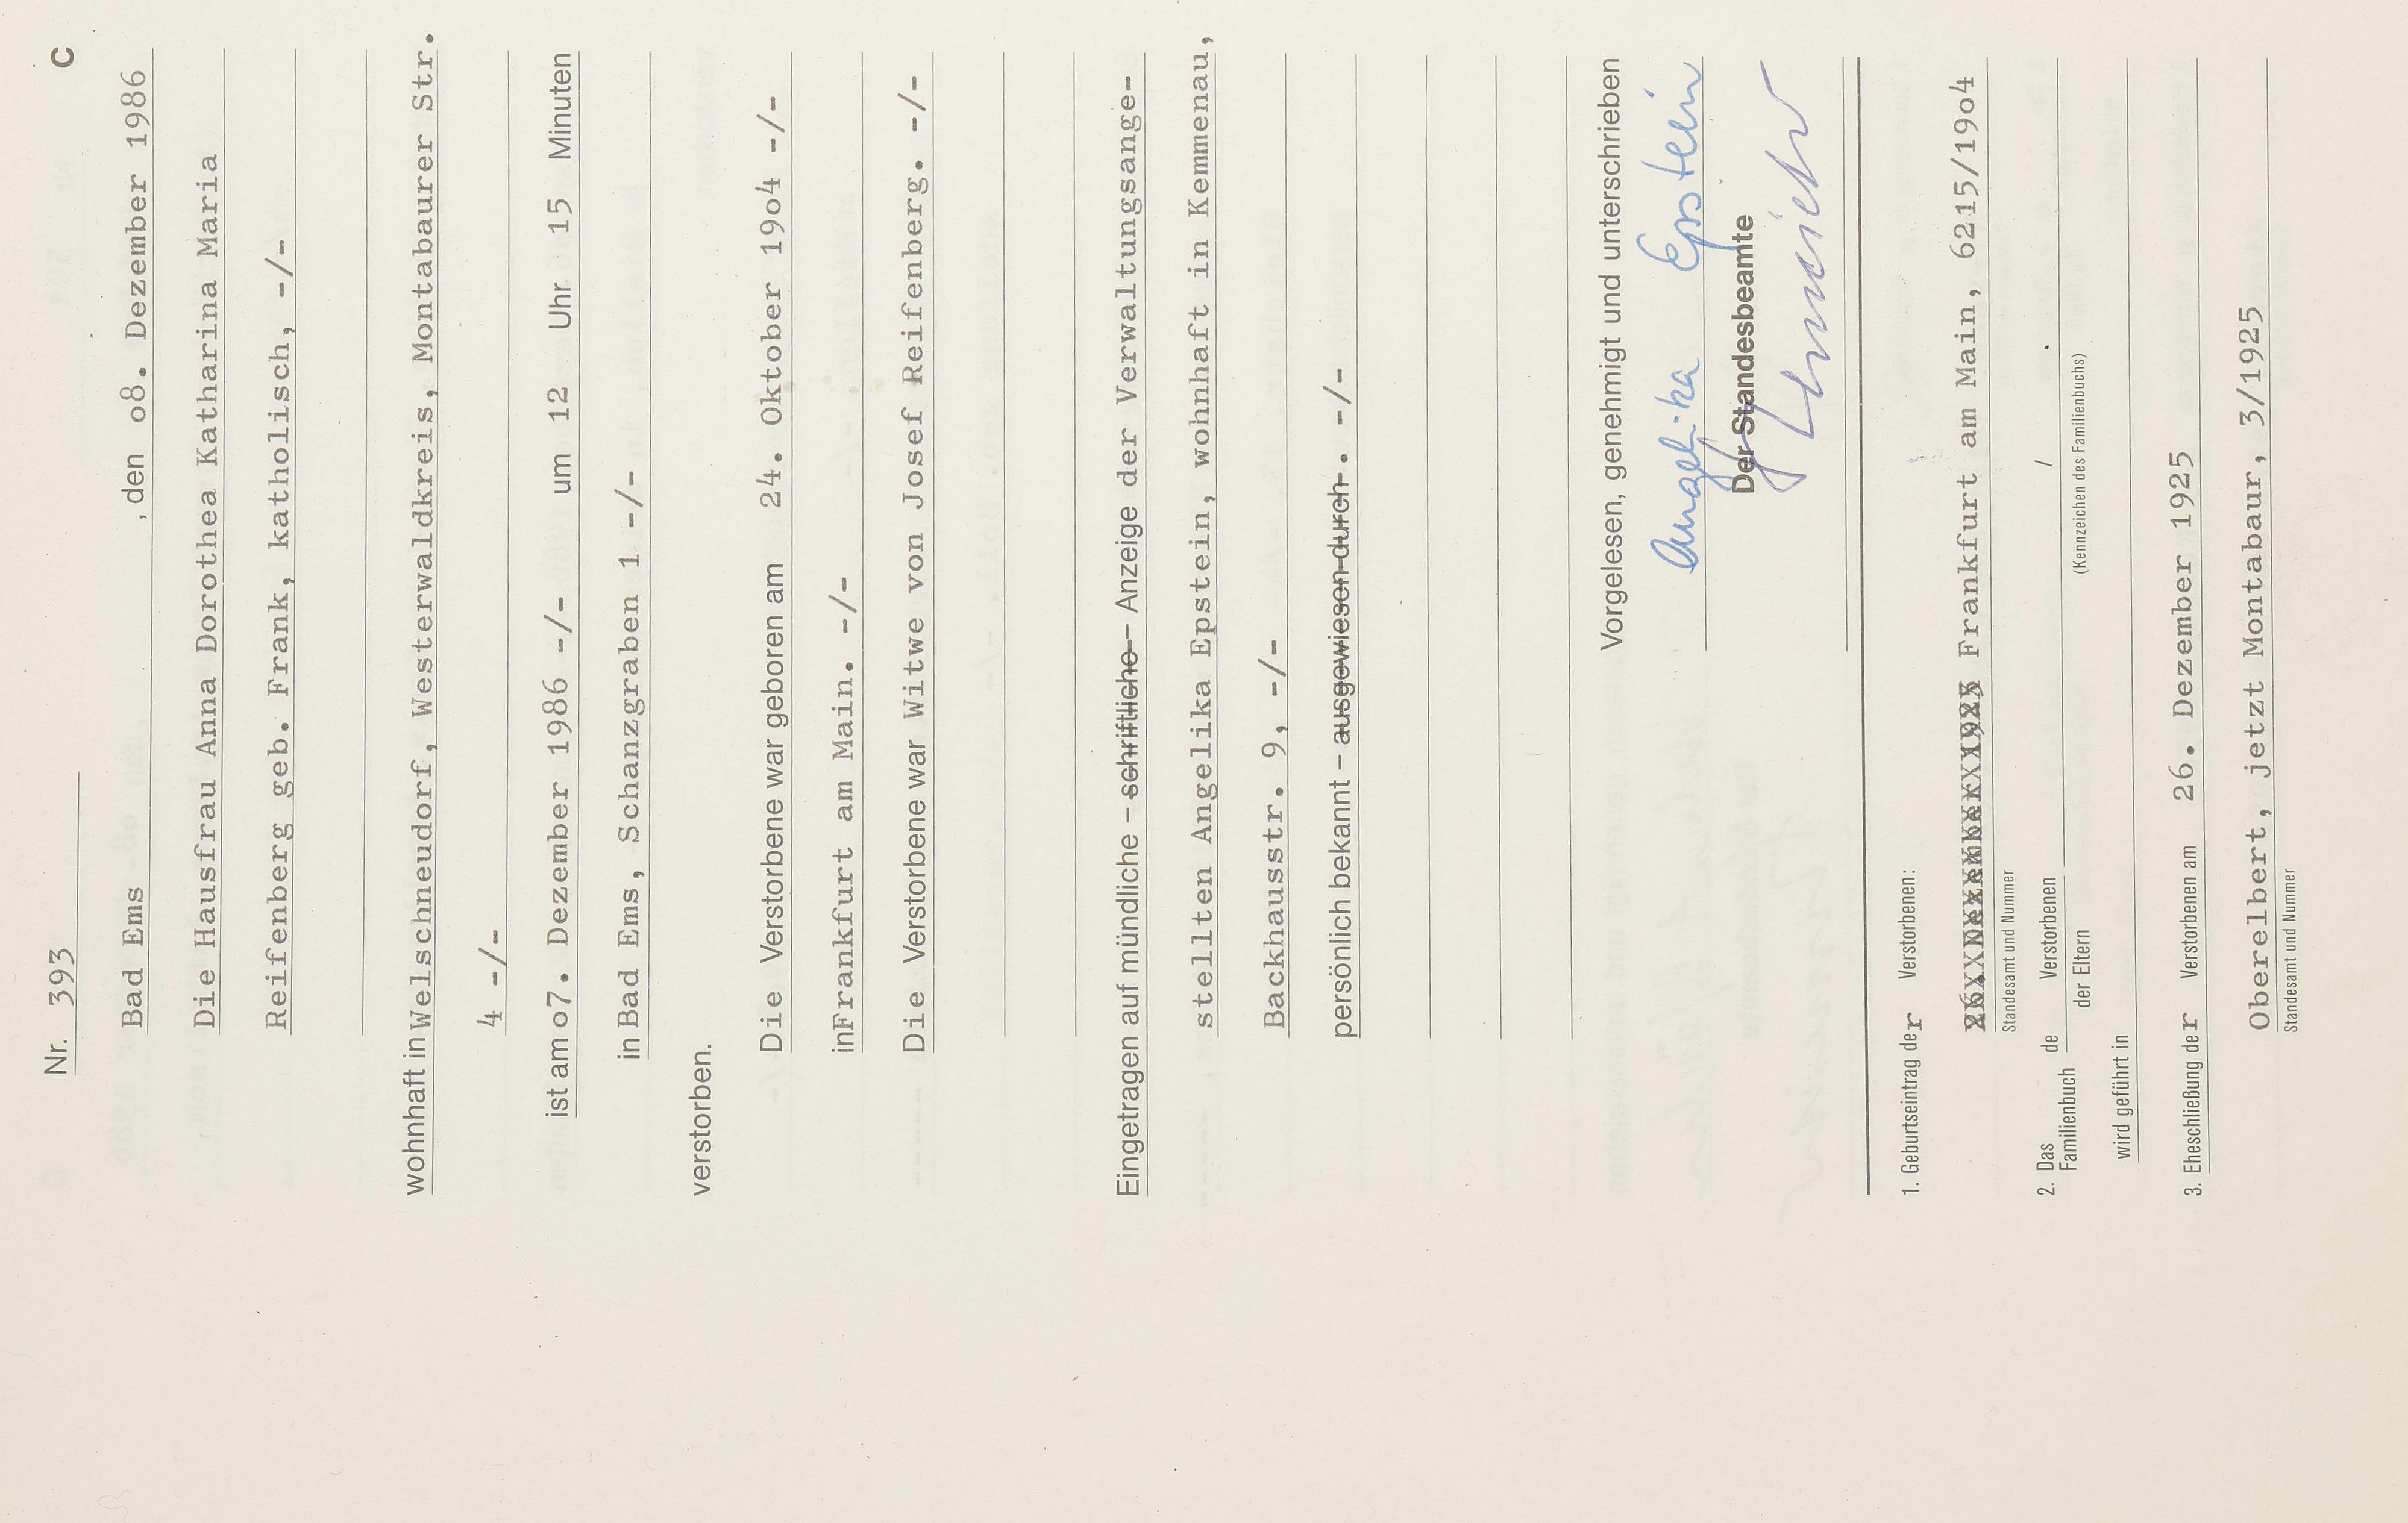 C
Nr. 393
Bad Ems , den o8. Dezember 1986
Die Hausfrau Anna Dorothea Katharina Maria
Reifenberg geb. Frank, katholisch, -/-
wohnhaft in Welschneudorf, Westerwaldkreis, Montabaurer Str.
4 -/-
ist am o7. Dezember 1986 -/- um 12 Uhr 15 Minuten
in Bad Ems, Schanzgraben 1 -/-
verstorben.
Die Verstorbene war geboren am 24. Oktober 19o4 -/-
in Frankfurt am Main. -/-
Die Verstorbene war Witwe von Josef Reifenberg. -/-
Eingetragen auf mündliche – schriftliche – Anzeige der Verwaltungsange-
stellten Angelika Epstein, wohnhaft in Kemmenau,
Backhausstr. 9, -/-
persönlich bekannt – ausgewiesen durch . -/-
Vorgelesen, genehmigt und unterschrieben
Angelika Epstein
Der Standesbeamte
1. Geburtseintrag der Verstorbenen:
26. Dezember 1925 Frankfurt am Main, 6215/19o4
Standesamt und Nummer
2. Das Familienbuch de Verstorbenen / der Eltern /
(Kennzeichen des Familienbuchs)
wird geführt in
3. Eheschließung der Verstorbenen am 26. Dezember 1925
Oberelbert, jetzt Montabaur, 3/1925
Standesamt und Nummer